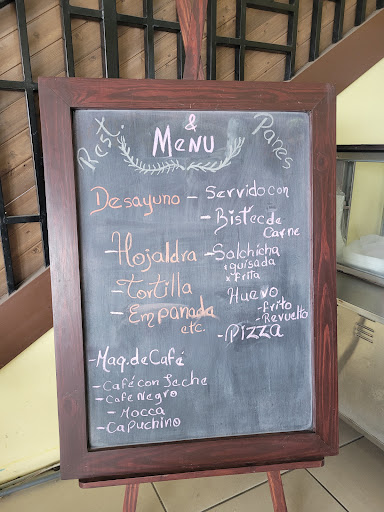 Rest. & Panes
Menu
Desayuno - Servido con
- Bistec de Carne
- Hojaldra
- Salchicha
* guisada
* frita
- Tortilla
Huevo
- frito
- Revuelto
- Empanada etc.
- Pizza
- Maq. de Café
- Café con Leche
- Cafe Negro
- Mocca
- Capuchino